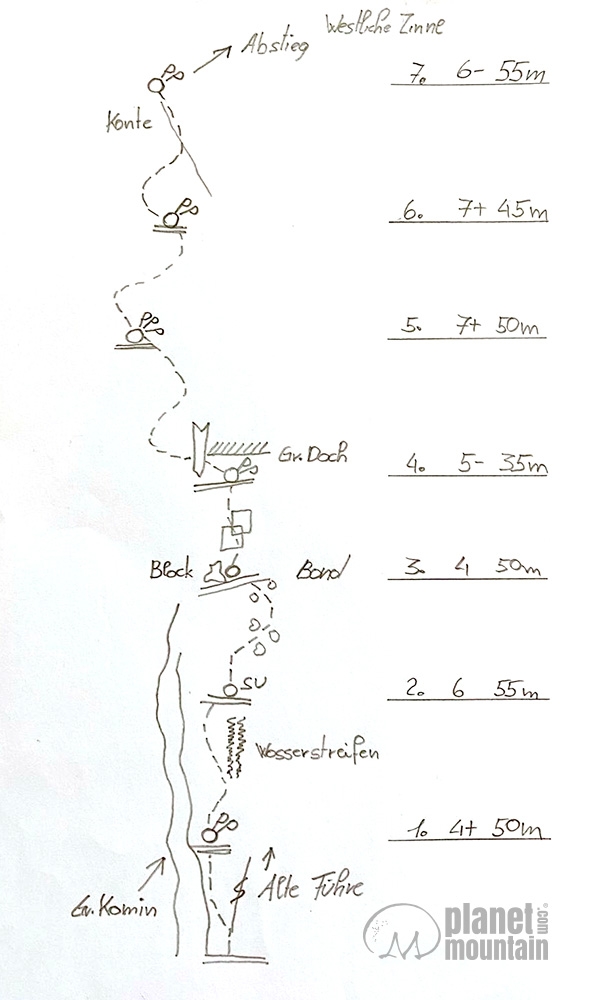 Westliche Zinne
Abstieg
PP
7. 6- 55m
Konte
PP
6. 7+ 45m
PPP
5. 7+ 50m
Gr. Doch
PP
4. 5- 35m
Block
Bond
3. 4 50m
SU
2. 6 55m
Wosserstreifen
PP
1. 4+ 50m
Alte Führe
Gr. Komin
planet
mountain
.com